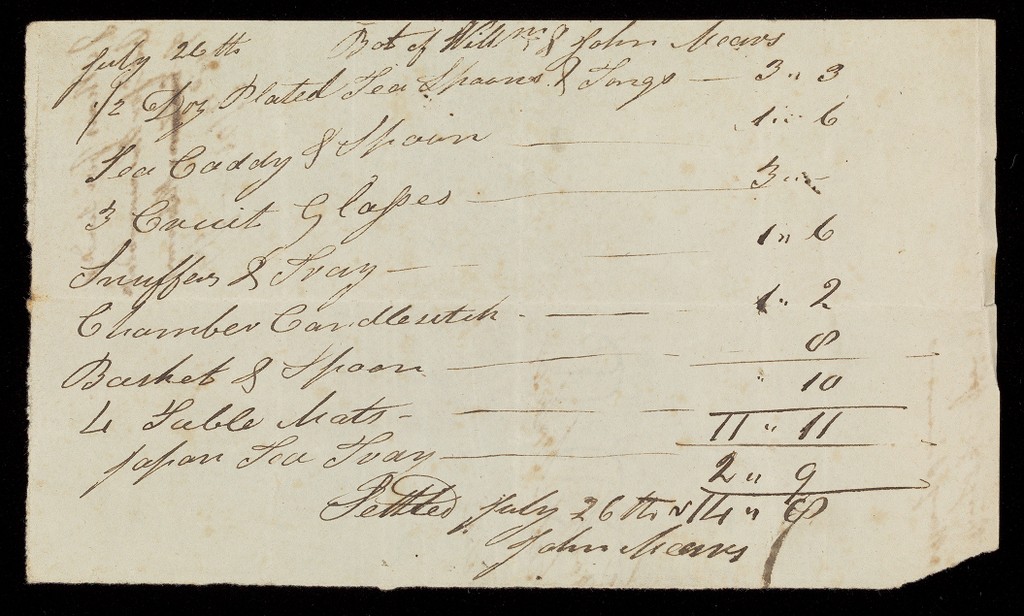 July 26th Bot of Willm & John Mears
1/2 Doz Plated Tea Spoons & Tongs — 3 " 3
Tea Caddy & Spoon — 1 " 6
3 Cruit Glasses — 3 " -
Snuffers & Tray — 1 " 6
Chamber Candlestick - — 1 " 2
Basket & Spoon — 8
4 Table Mats - — " 10
11 " 11
Japan Tea Tray — 2 " 9
Settled July 26th 14 " 8
John Mears